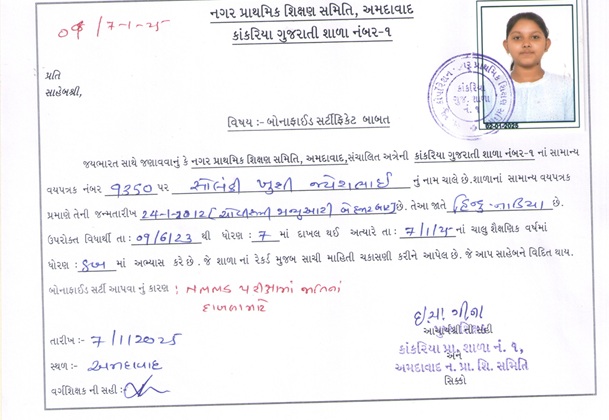 નગર પ્રાથમિક શિક્ષણ સમિતિ, અમદાવાદ
કાંકરિયા ગુજરાતી શાળા નંબર-૧
09/7-1-25
પ્રતિ
સાહેબશ્રી,
કાંકરિયા
ગુજ. શાળા
નં. ૧
02-01-2025
વિષય :- બોનાફાઈડ સર્ટીફિકેટ બાબત
જયભારત સાથે જણાવવાનું કે નગર પ્રાથમિક શિક્ષણ સમિતિ, અમદાવાદ,સંચાલિત અત્રેની કાંકરિયા ગુજરાતી શાળા નંબર-૧ નાં સામાન્ય
વયપત્રક નંબર 9350 પર સોલંકી ખુશી જયેશભાઈ નું નામ ચાલે છે.શાળાનાં સામાન્ય વયપત્રક
પ્રમાણે તેની જન્મતારીખ 24-1-2012 (ચોવીસમી જાન્યુઆરી બે હજાર બાર) છે. તેઆ જાતે હિન્દુ છે.
ઉપરોક્ત વિધાર્થી તા : 09/6/23 થી ધોરણ : 7 માં દાખલ થઈ અત્યારે તા : 7/1/25 નાં ચાલુ શૈક્ષણિક વર્ષમાં
ધોરણ : 8બ માં અભ્યાસ કરે છે . જે શાળા નાં રેકર્ડ મુજબ સાચી માહિતી ચકાસણી કરીને આપેલ છે. જે આપ સાહેબને વિદિત થાય.
બોનાફાઈડ સર્ટી આપવા નું કારણ : NMMS પરીક્ષામાં જાતિનાં
દાખલા માટે
તારીખ :- 7/1/2025
સ્થળ :- અમદાવાદ
વર્ગશિક્ષક ની સહી :
આચાર્યશ્રી ની સહી
કાંકરિયા પ્રા. શાળા નં. ૧,
અને
અમદાવાદ ન. પ્રા. શિ. સમિતિ
સિક્કો